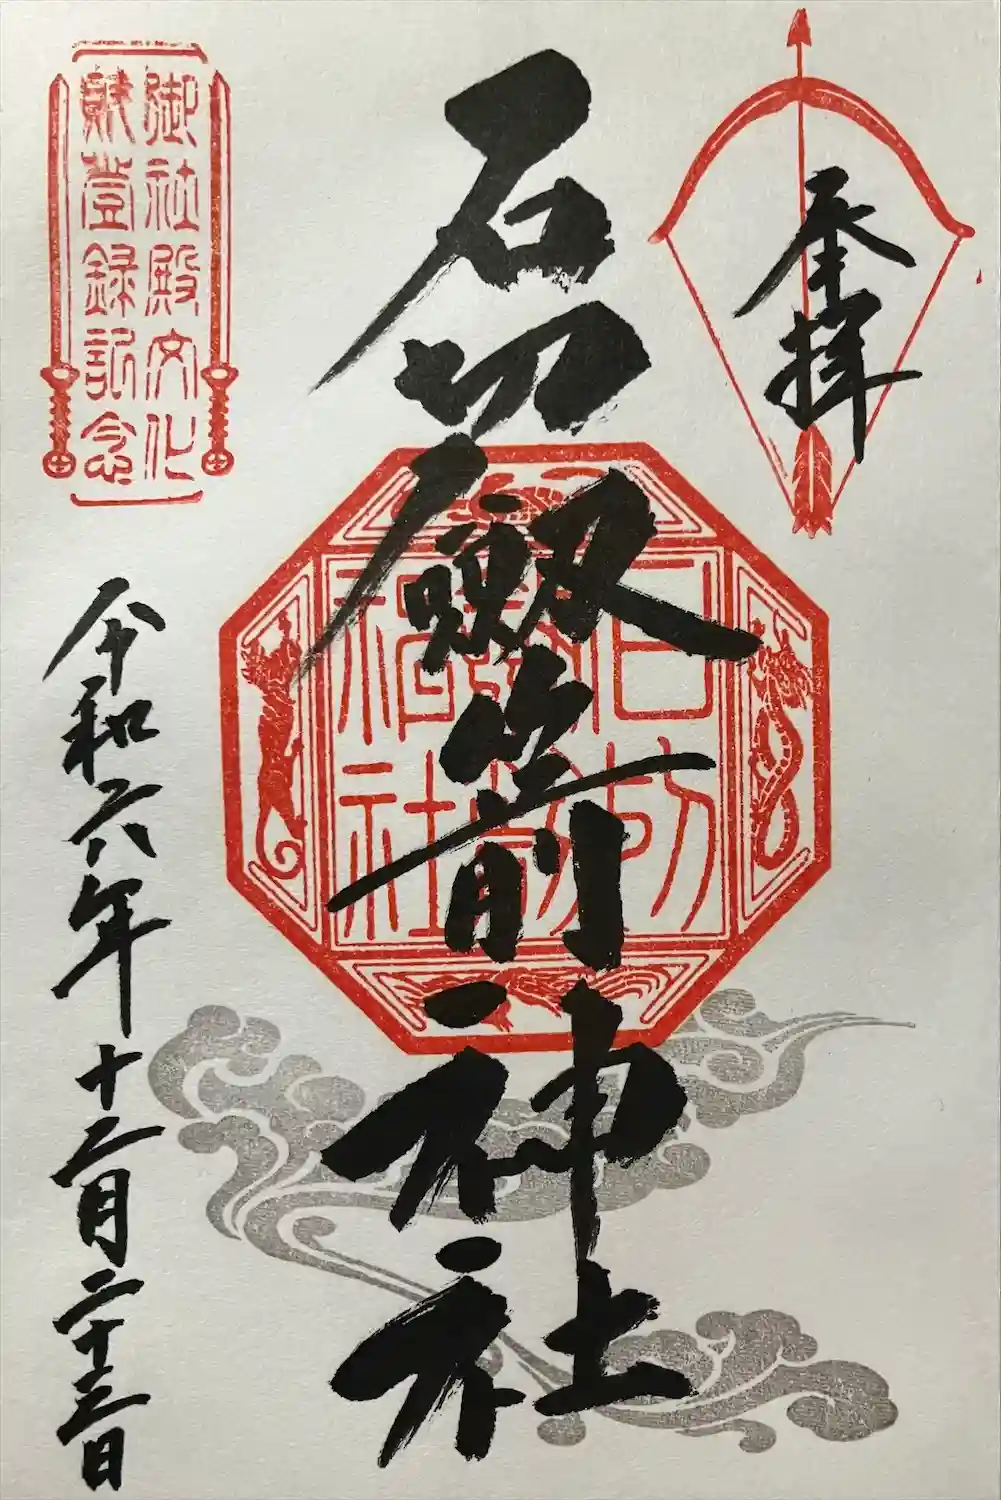 奉拝
石切劔箭神社
石切劔箭神社
御社殿文化
財登録記念
令和六年十二月二十三日